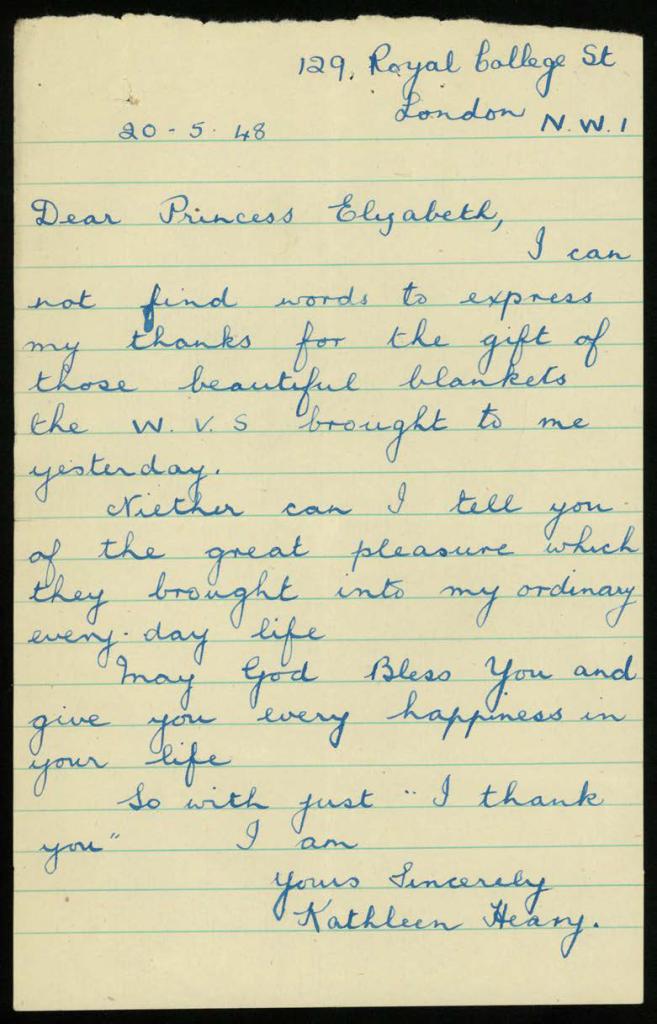 129, Royal College St
London N.W.1
20-5.48
Dear Princess Elizabeth,
I can
not find words to express
my thanks for the gift of
those beautiful blankets
the W.V.S brought to me
yesterday.
Niether can I tell you
of the great pleasure which
they brought into my ordinary
every-day life
May God Bless You and
give you every happiness in
your life
So with just "I thank
you" I am
Yours Sincerely
Kathleen Heany.